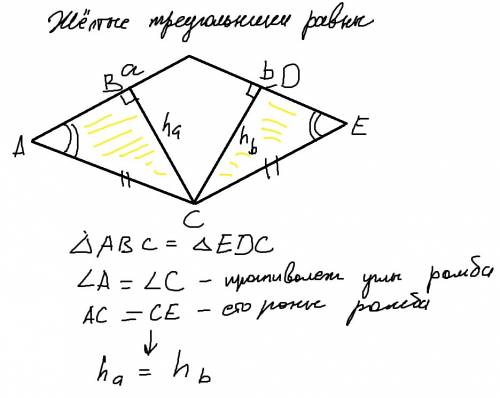 Жёлтые треугольники равны
a
b
B
D
A
E
hₐ
h_b
C
△ABC = △EDC
∠A = ∠C - противолеж углы ромба
AC = CE - стороны ромба
↓
hₐ = h_b